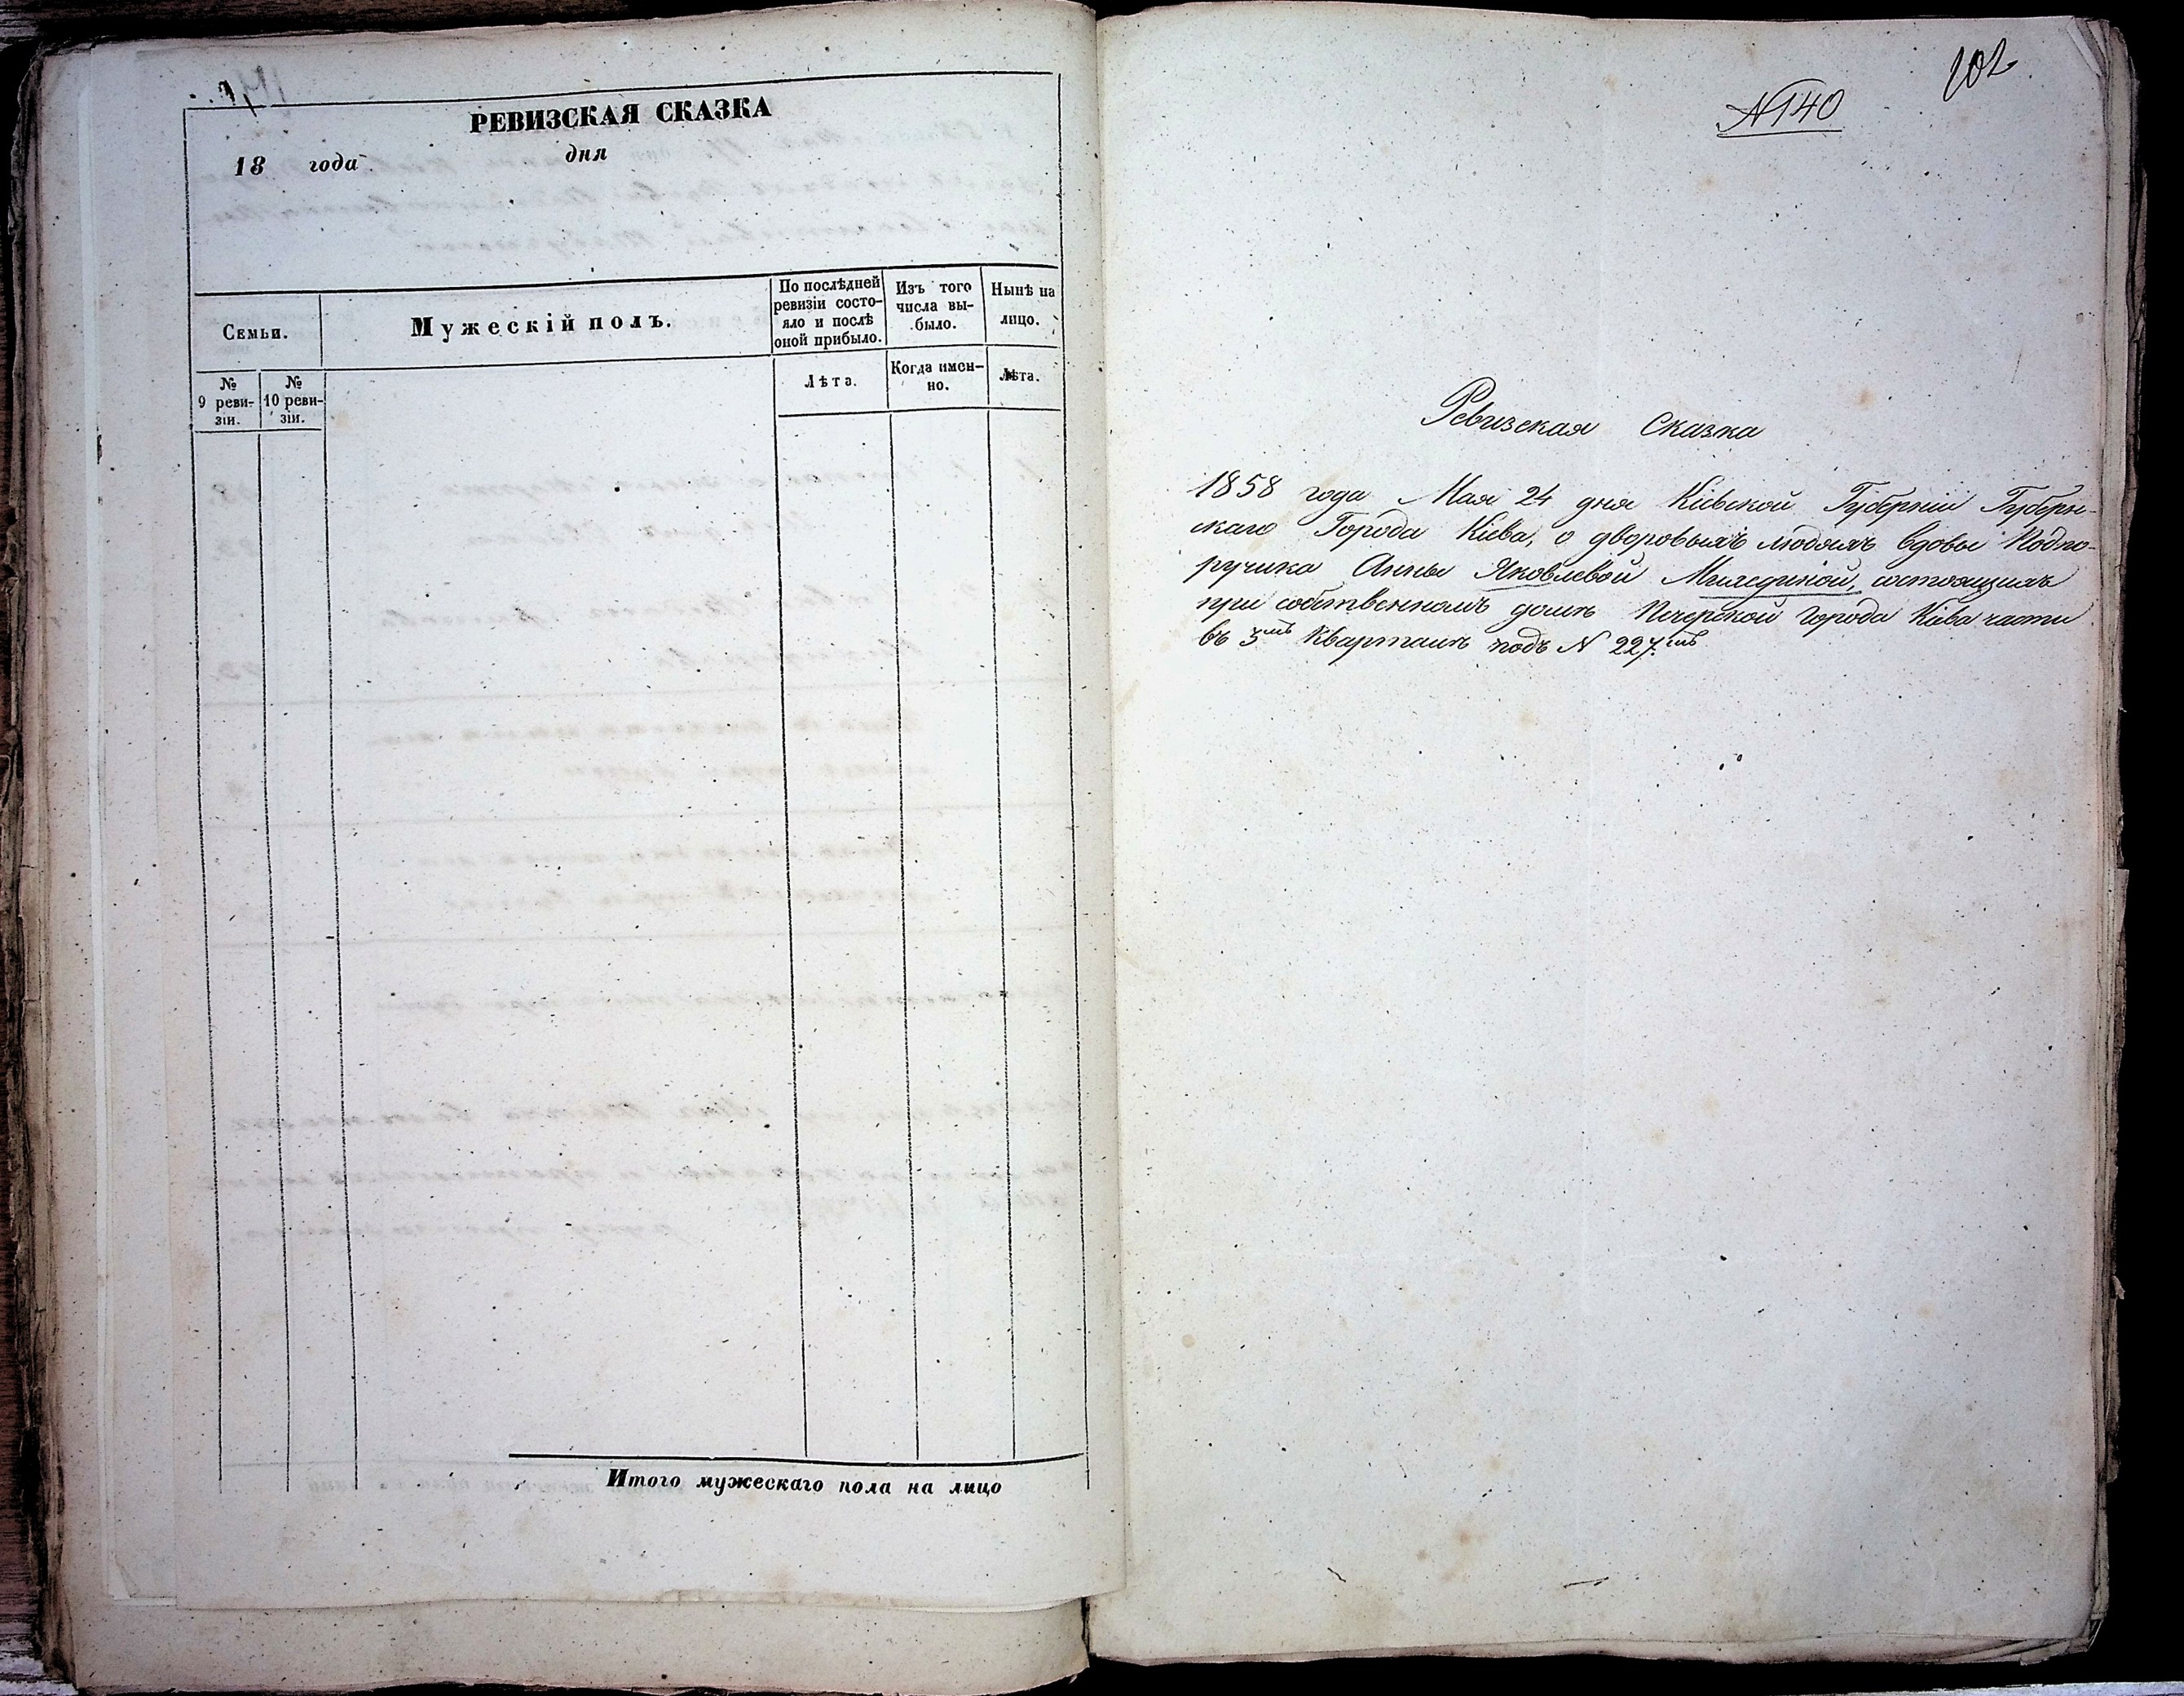 РЕВИЗСКАЯ СКАЗКА
18 года дня
Семьи.
Мужескій полъ.
По послѣдней ревизіи состо-
яло и послѣ
оной прибыло.
Изъ того
числа вы-
было.
Нынѣ на
лицо.
№
9 реви-
зіи.
№
10 реви-
зіи.
Лѣта.
Когда имен-
но.
Лѣта.
Итого мужескаго пола на лицо
102
№140
Ревизская Сказка
1858 года Мая 24 дня Кіевской Губерніи Губерн-
скаго Города Кіева, о дворовыхъ людяхъ вдовы Подпо-
ручика Анны Яковлевой состоящихъ
при собственномъ домѣ Печерской города Кіева части
въ 3мъ Кварталѣ подъ N 227.мъ